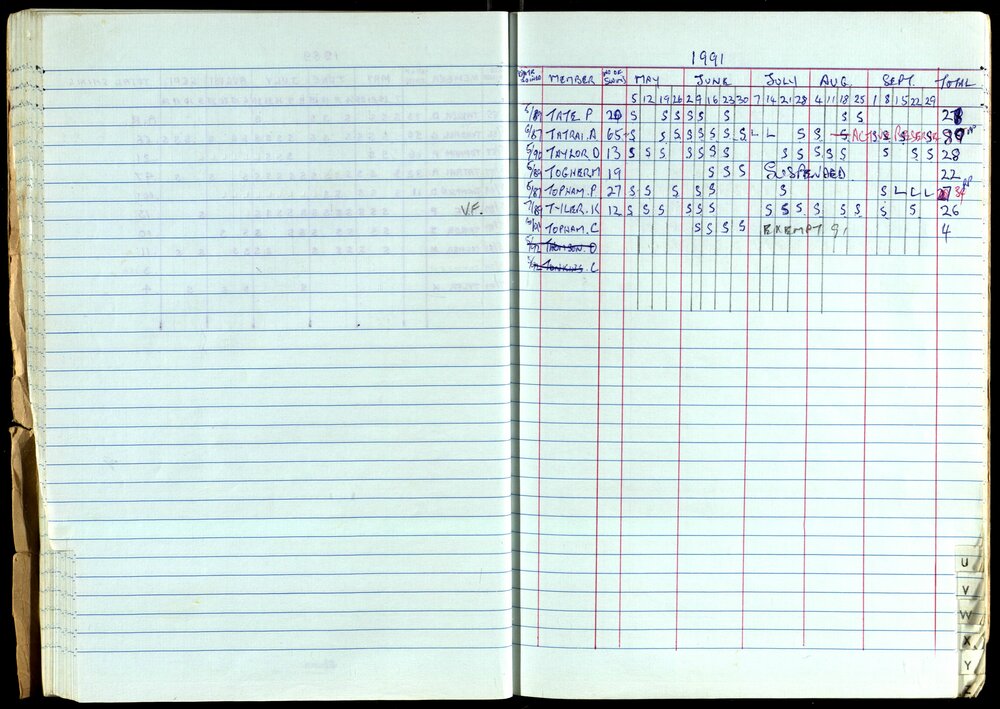 1991
DATE JOINED MEMBER NO OF SWIMS MAY JUNE JULY AUG. SEPT. TOTAL
5 12 19 26 2 9 16 23 30 7 14 21 28 4 11 18 25 1 8 15 22 29
5/89 TATE P 20 S S S S S S S S S
6/87 TATRAI. A 65 S S S S S S S S L L S S S ACTIVE RESERVE
5/90 TAYLOR D 13 S S S S S S S S S S S S S S S S 28
5/89 TOGHER M 19 S S S SUSPENDED. 22
6/87 TOPHAM. P 27 S S S S S S S L L L 34
V.F. 7/89 TYLER. K 12 S S S S S S S S S S S S S S 26
TOPHAM. C S S S S EXEMPT 91 4
THOMSON. D
TONKINS. C
U
V
W
X
Y